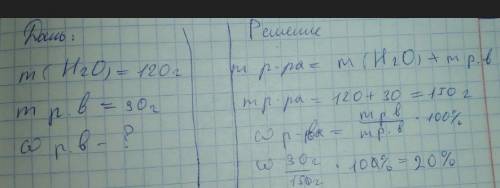 Дано:
m (H2O) = 120 г
m р.в = 30 г
ω р.в - ?
Решение
m р-ра = m (H2O) + m р.в
m р-ра = 120 + 30 = 150 г
ω р-ва = m р.в / m р.в · 100%
ω 30 г / 150 г · 100% = 20%